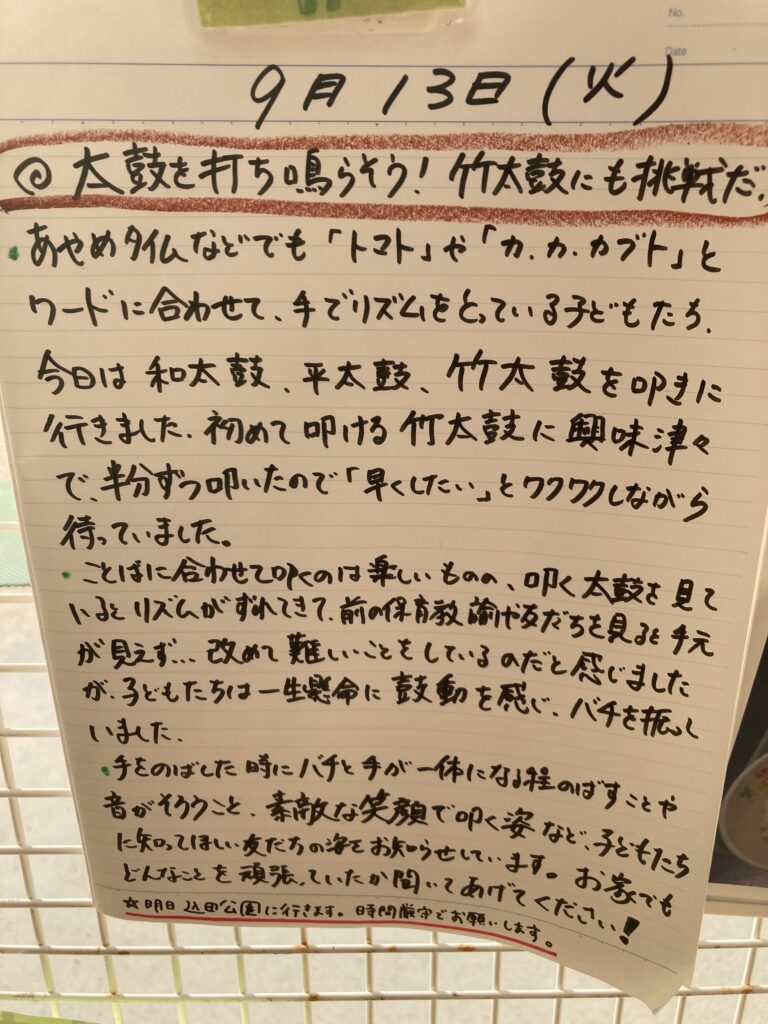 No.
Date
9月13日(火)
◎太鼓を打ち鳴らそう!竹太鼓にも挑戦だ!
・あやめタイムなどでも「トマト」や「カ.カ.カブト」と
ワードに合わせて、手でリズムをとっている子どもたち.
今日は和太鼓、平太鼓、竹太鼓を叩きに
行きました.初めて叩ける竹太鼓に興味津々
で、半分ずつ叩いたので「早くしたい」とワクワクしながら
待っていました。
・ことばに合わせて叩くのは楽しいものの、叩く太鼓を見て
いるとリズムがずれてきて、前の保育教諭や友だちを見ると手元
が見えず…改めて難しいことをしているのだと感じました
が、子どもたちは一生懸命に鼓動を感じ、バチを振って
いました.
・手をのばした時にバチと手が一体になる程のばすことや
音がそろうこと、素敵な笑顔で叩く姿など、子どもたち
に知ってほしい友だちの姿をお知らせしています。お家でも
どんなことを頑張っていたか聞いてあげてください!
☆明日込田公園に行きます。時間厳守でお願いします。